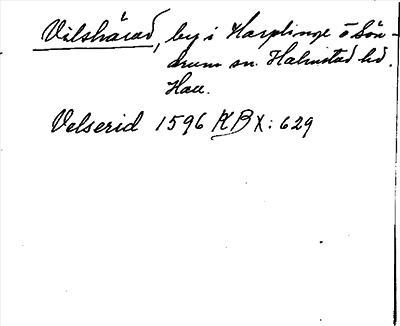 Vilshärad, by i Harplinge o Sön-
drum sn. Halmstad hd.
Hall.
Velserid 1596 KB X: 629